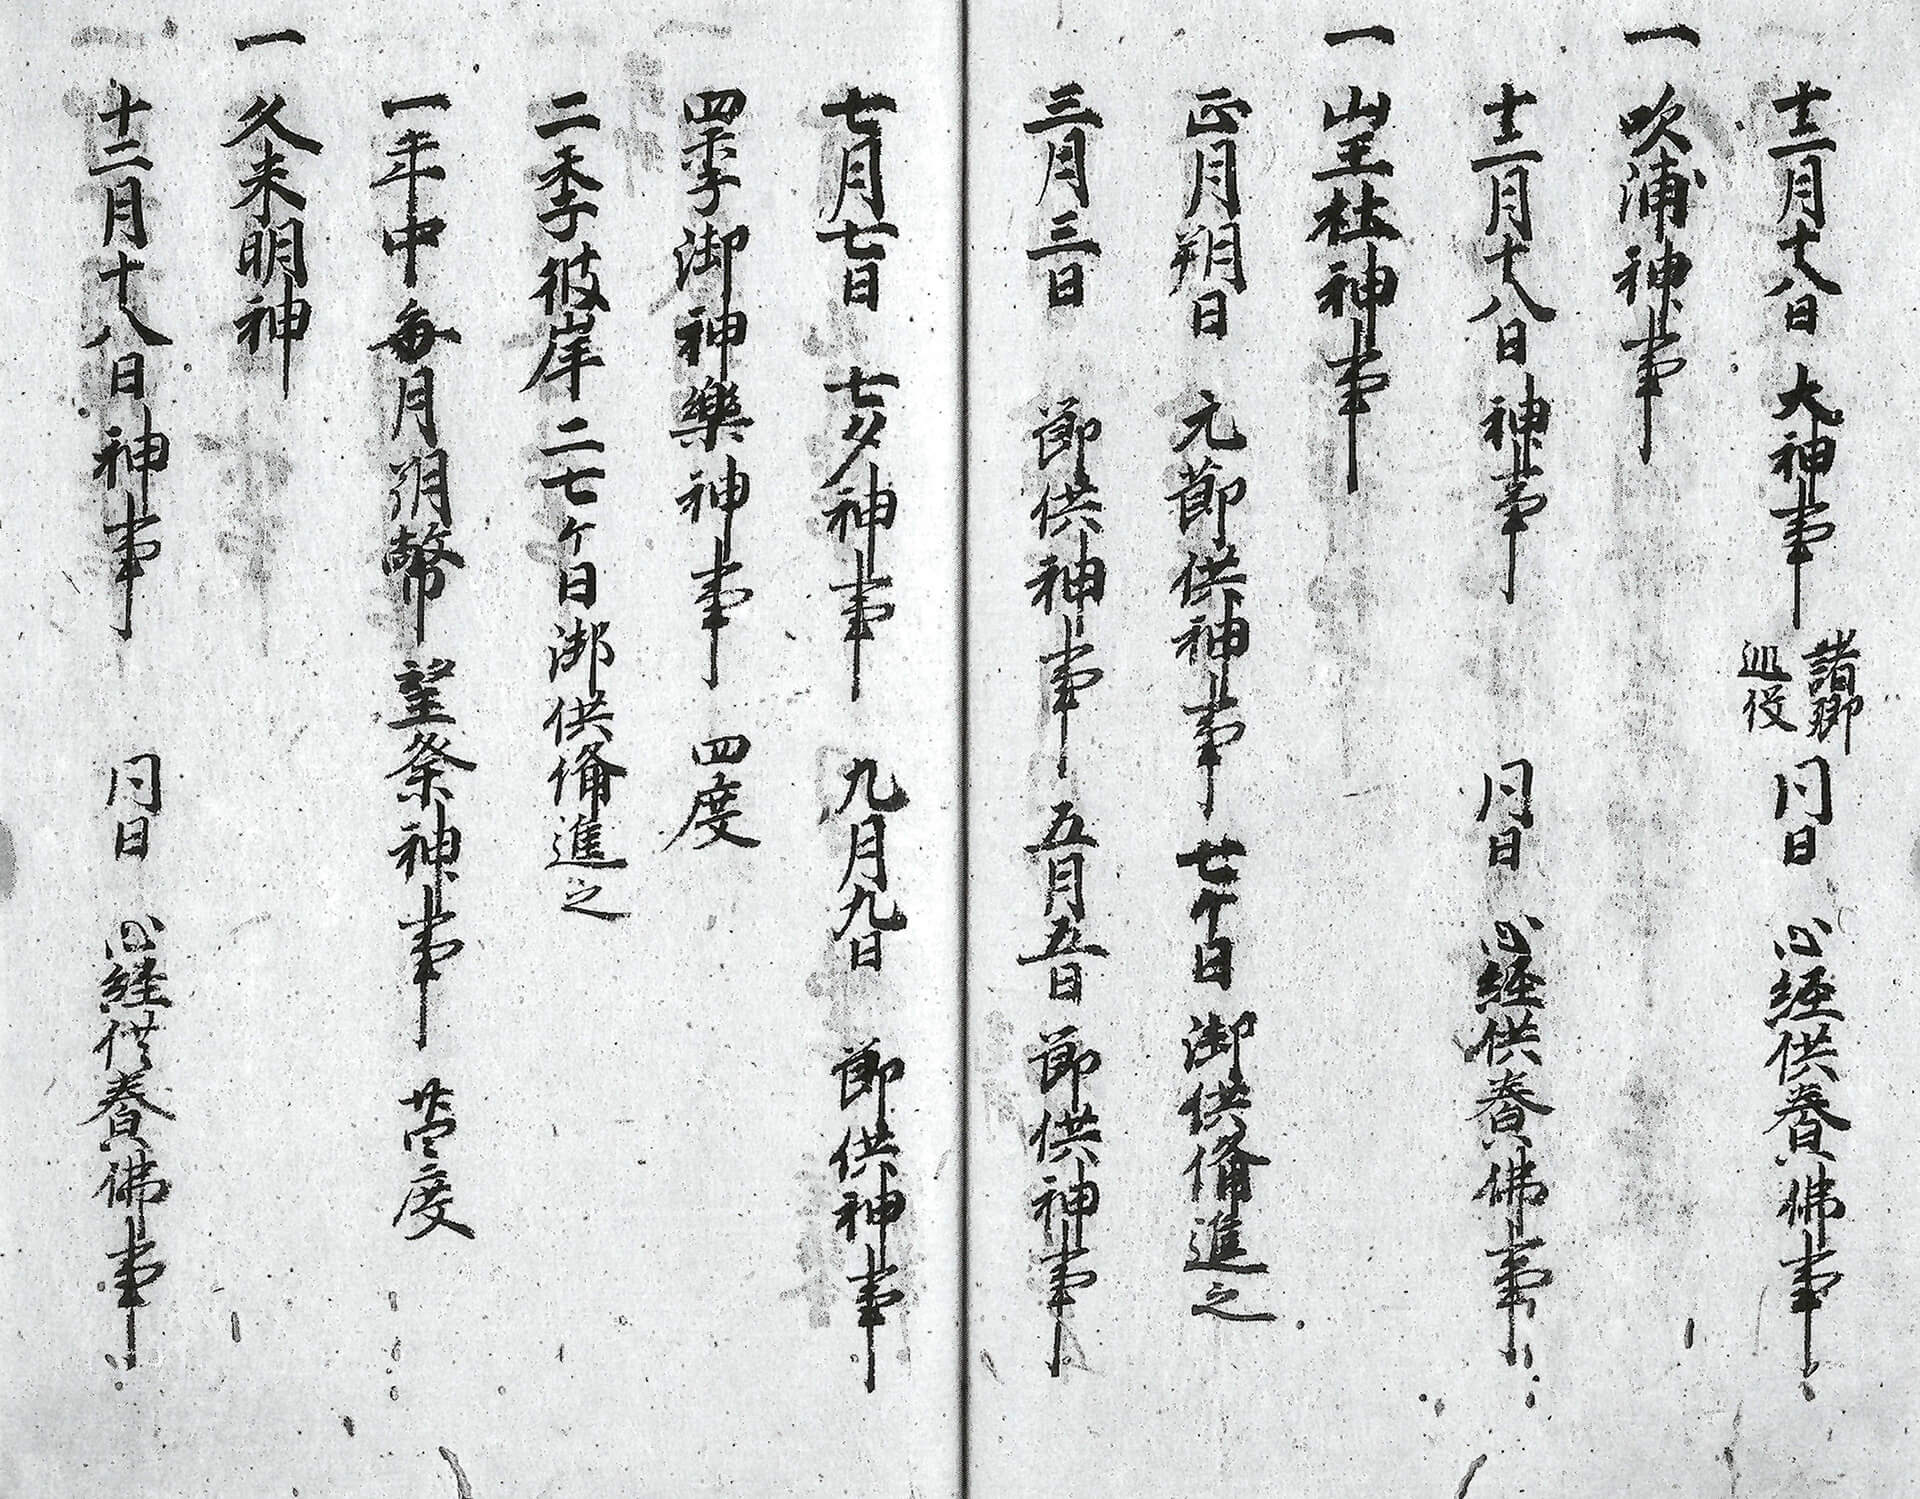 十二月十八日 大神事 諸郷巡役 同日 心経供養佛事
一 吹浦神事
十二月十八日 神事 同日 心経供養佛事
一 山王社神事
正月朔日 元節供神事 七ケ日 御供備進之
三月三日 節供神事 五月五日 節供神事
七月七日 七夕神事 九月九日 節供神事
四季御神樂神事 四度
二季彼岸 二七ケ日 御供備進之
一年中毎月朔幣 望祭神事 度
一 久米明神
十二月十八日 神事 同日 心経供養佛事